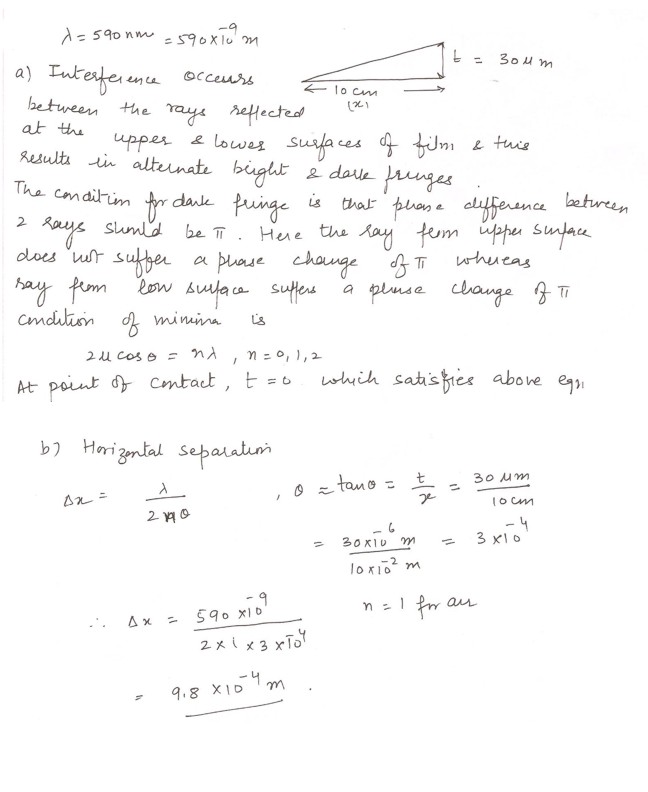 λ = 590 nm = 590 × 10⁻⁹ m
t = 30 μm
10 cm
(x)
a) Interference occurs
between the rays reflected
at the upper & lower surfaces of film & this
results in alternate bright & dark fringes.
The condition for dark fringe is that phase difference between
2 rays should be π. Here the ray from upper surface
does not suffer a phase change of π whereas
ray from low surface suffers a phase change of π
condition of minima is
2μ cos θ = nλ, n = 0, 1, 2
At point of contact, t = 0 which satisfies above eqn
b) Horizontal separation
Δx = λ / 2nθ , θ ≈ tanθ = t/x = 30 μm / 10 cm
= 30×10⁻⁶ m / 10×10⁻² m = 3 × 10⁻⁴
∴ Δx = 590 × 10⁻⁹ / 2 × 1 × 3 × 10⁻⁴ n = 1 for air
= 9.8 × 10⁻⁴ m .